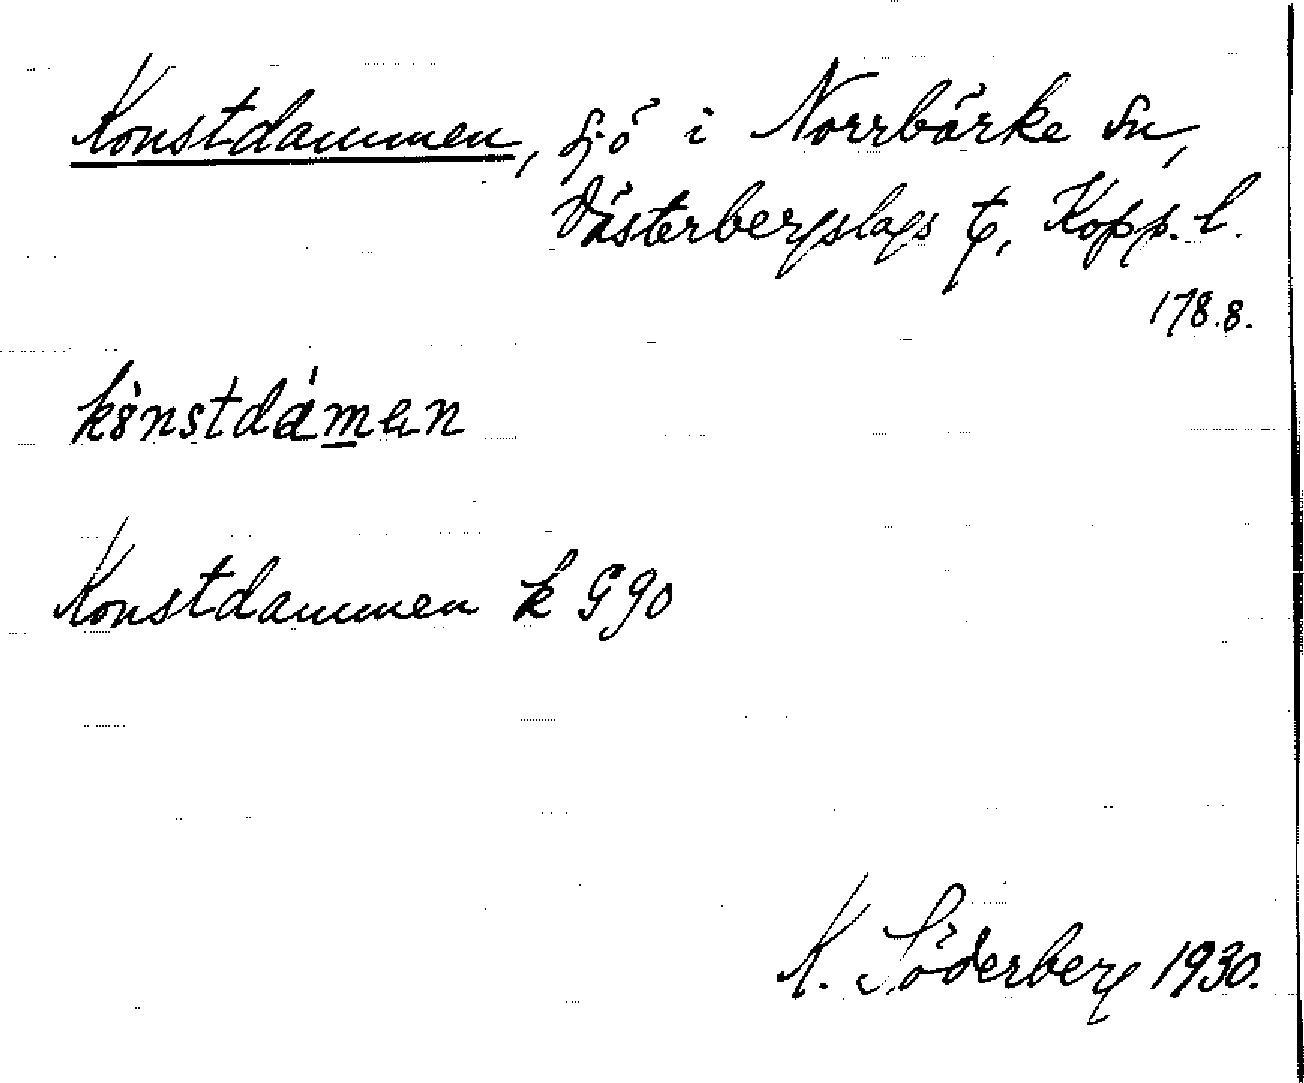 Konstdammen, sjö i Norrbärke sn,
Västerbergslags tg, Kopp. l.
178.8.
kònstdámen
Konstdammen k G90
K. Söderberg 1930.